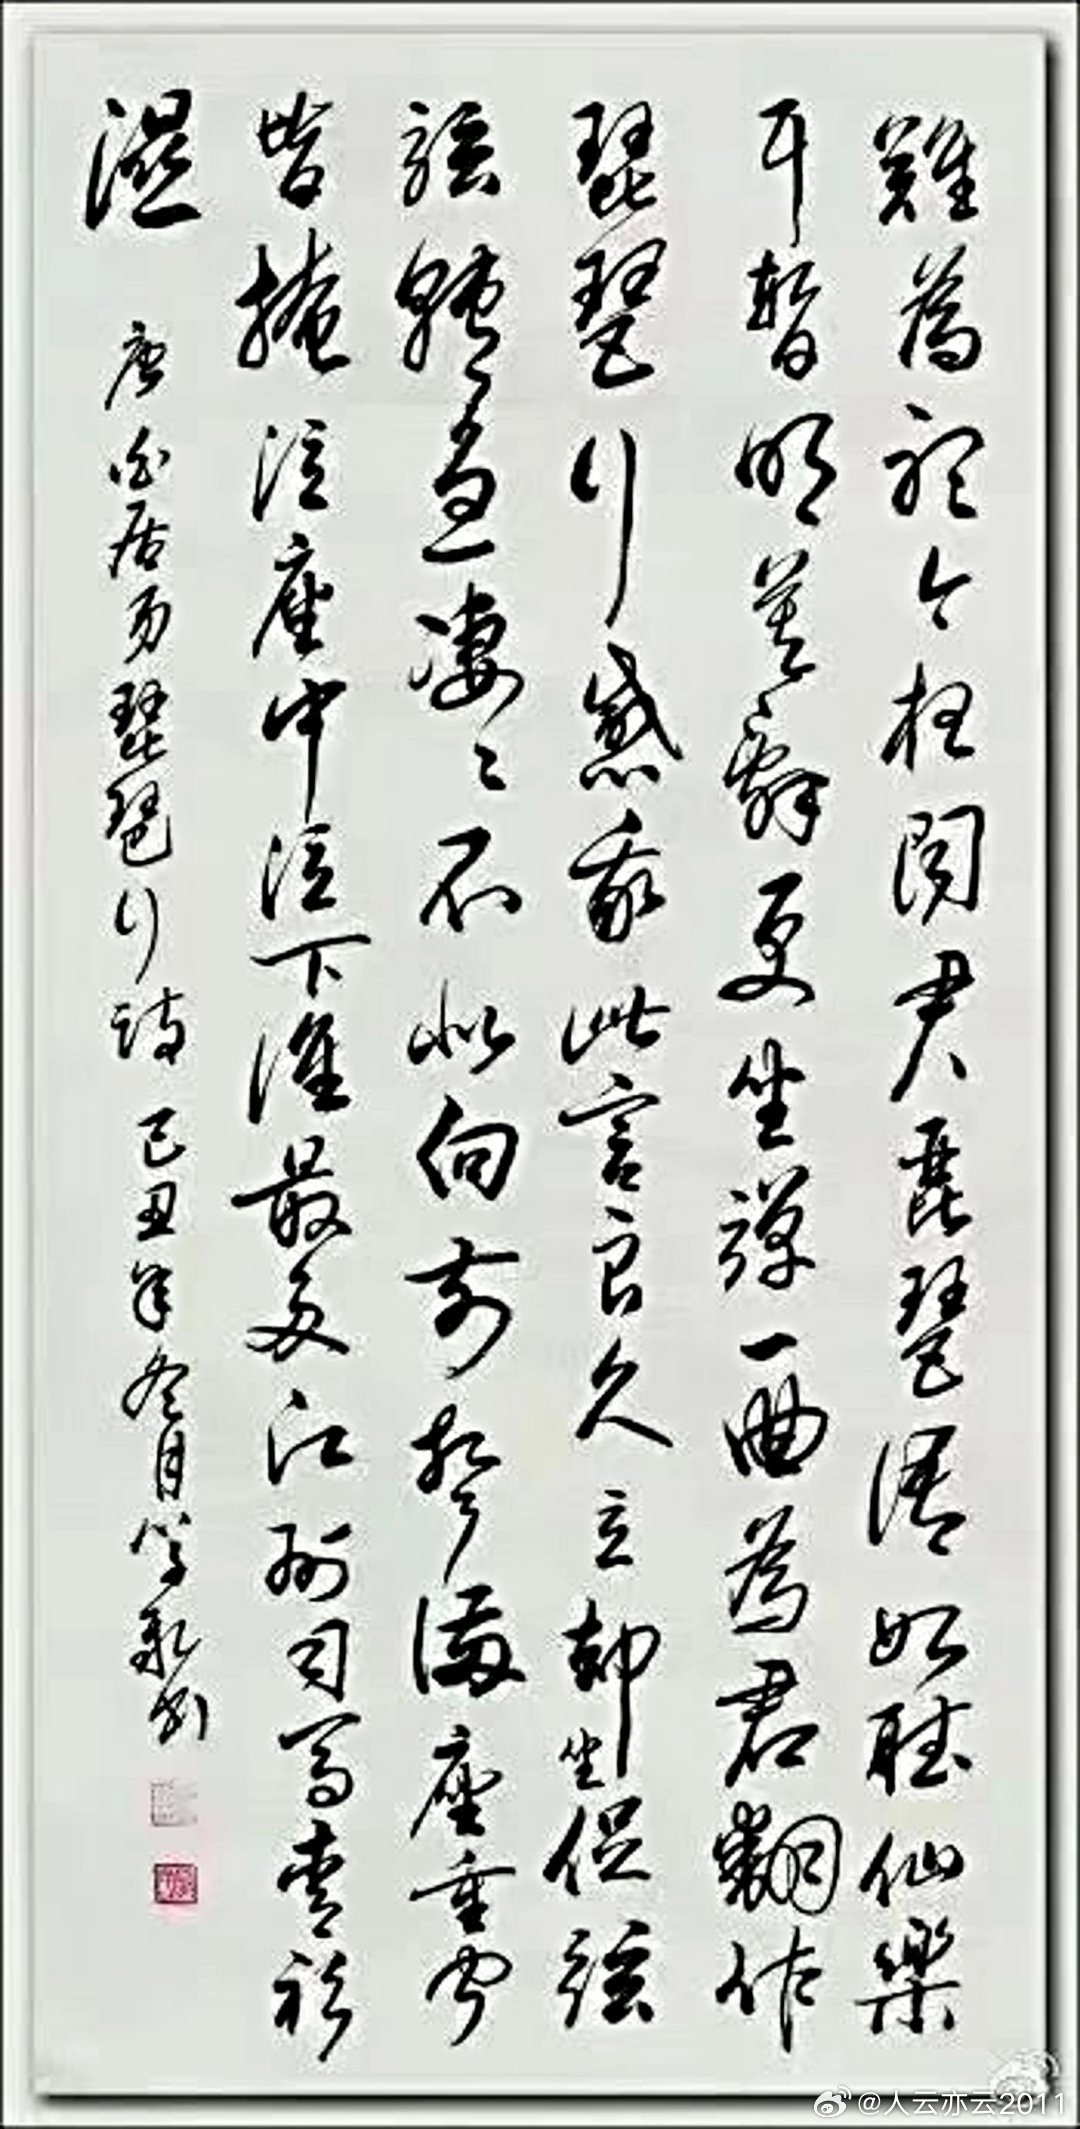 難為聽今夜聞君琵琶語如聽仙樂
耳暫明莫辭更坐彈一曲為君翻作
琵琶行感我此言良久立卻坐促弦
弦轉急淒〻不似向前聲滿座重聞
皆掩泣座中泣下誰最多江州司馬青衫
濕
唐白居易琵琶行詩 己丑年冬月
@人云亦云2011